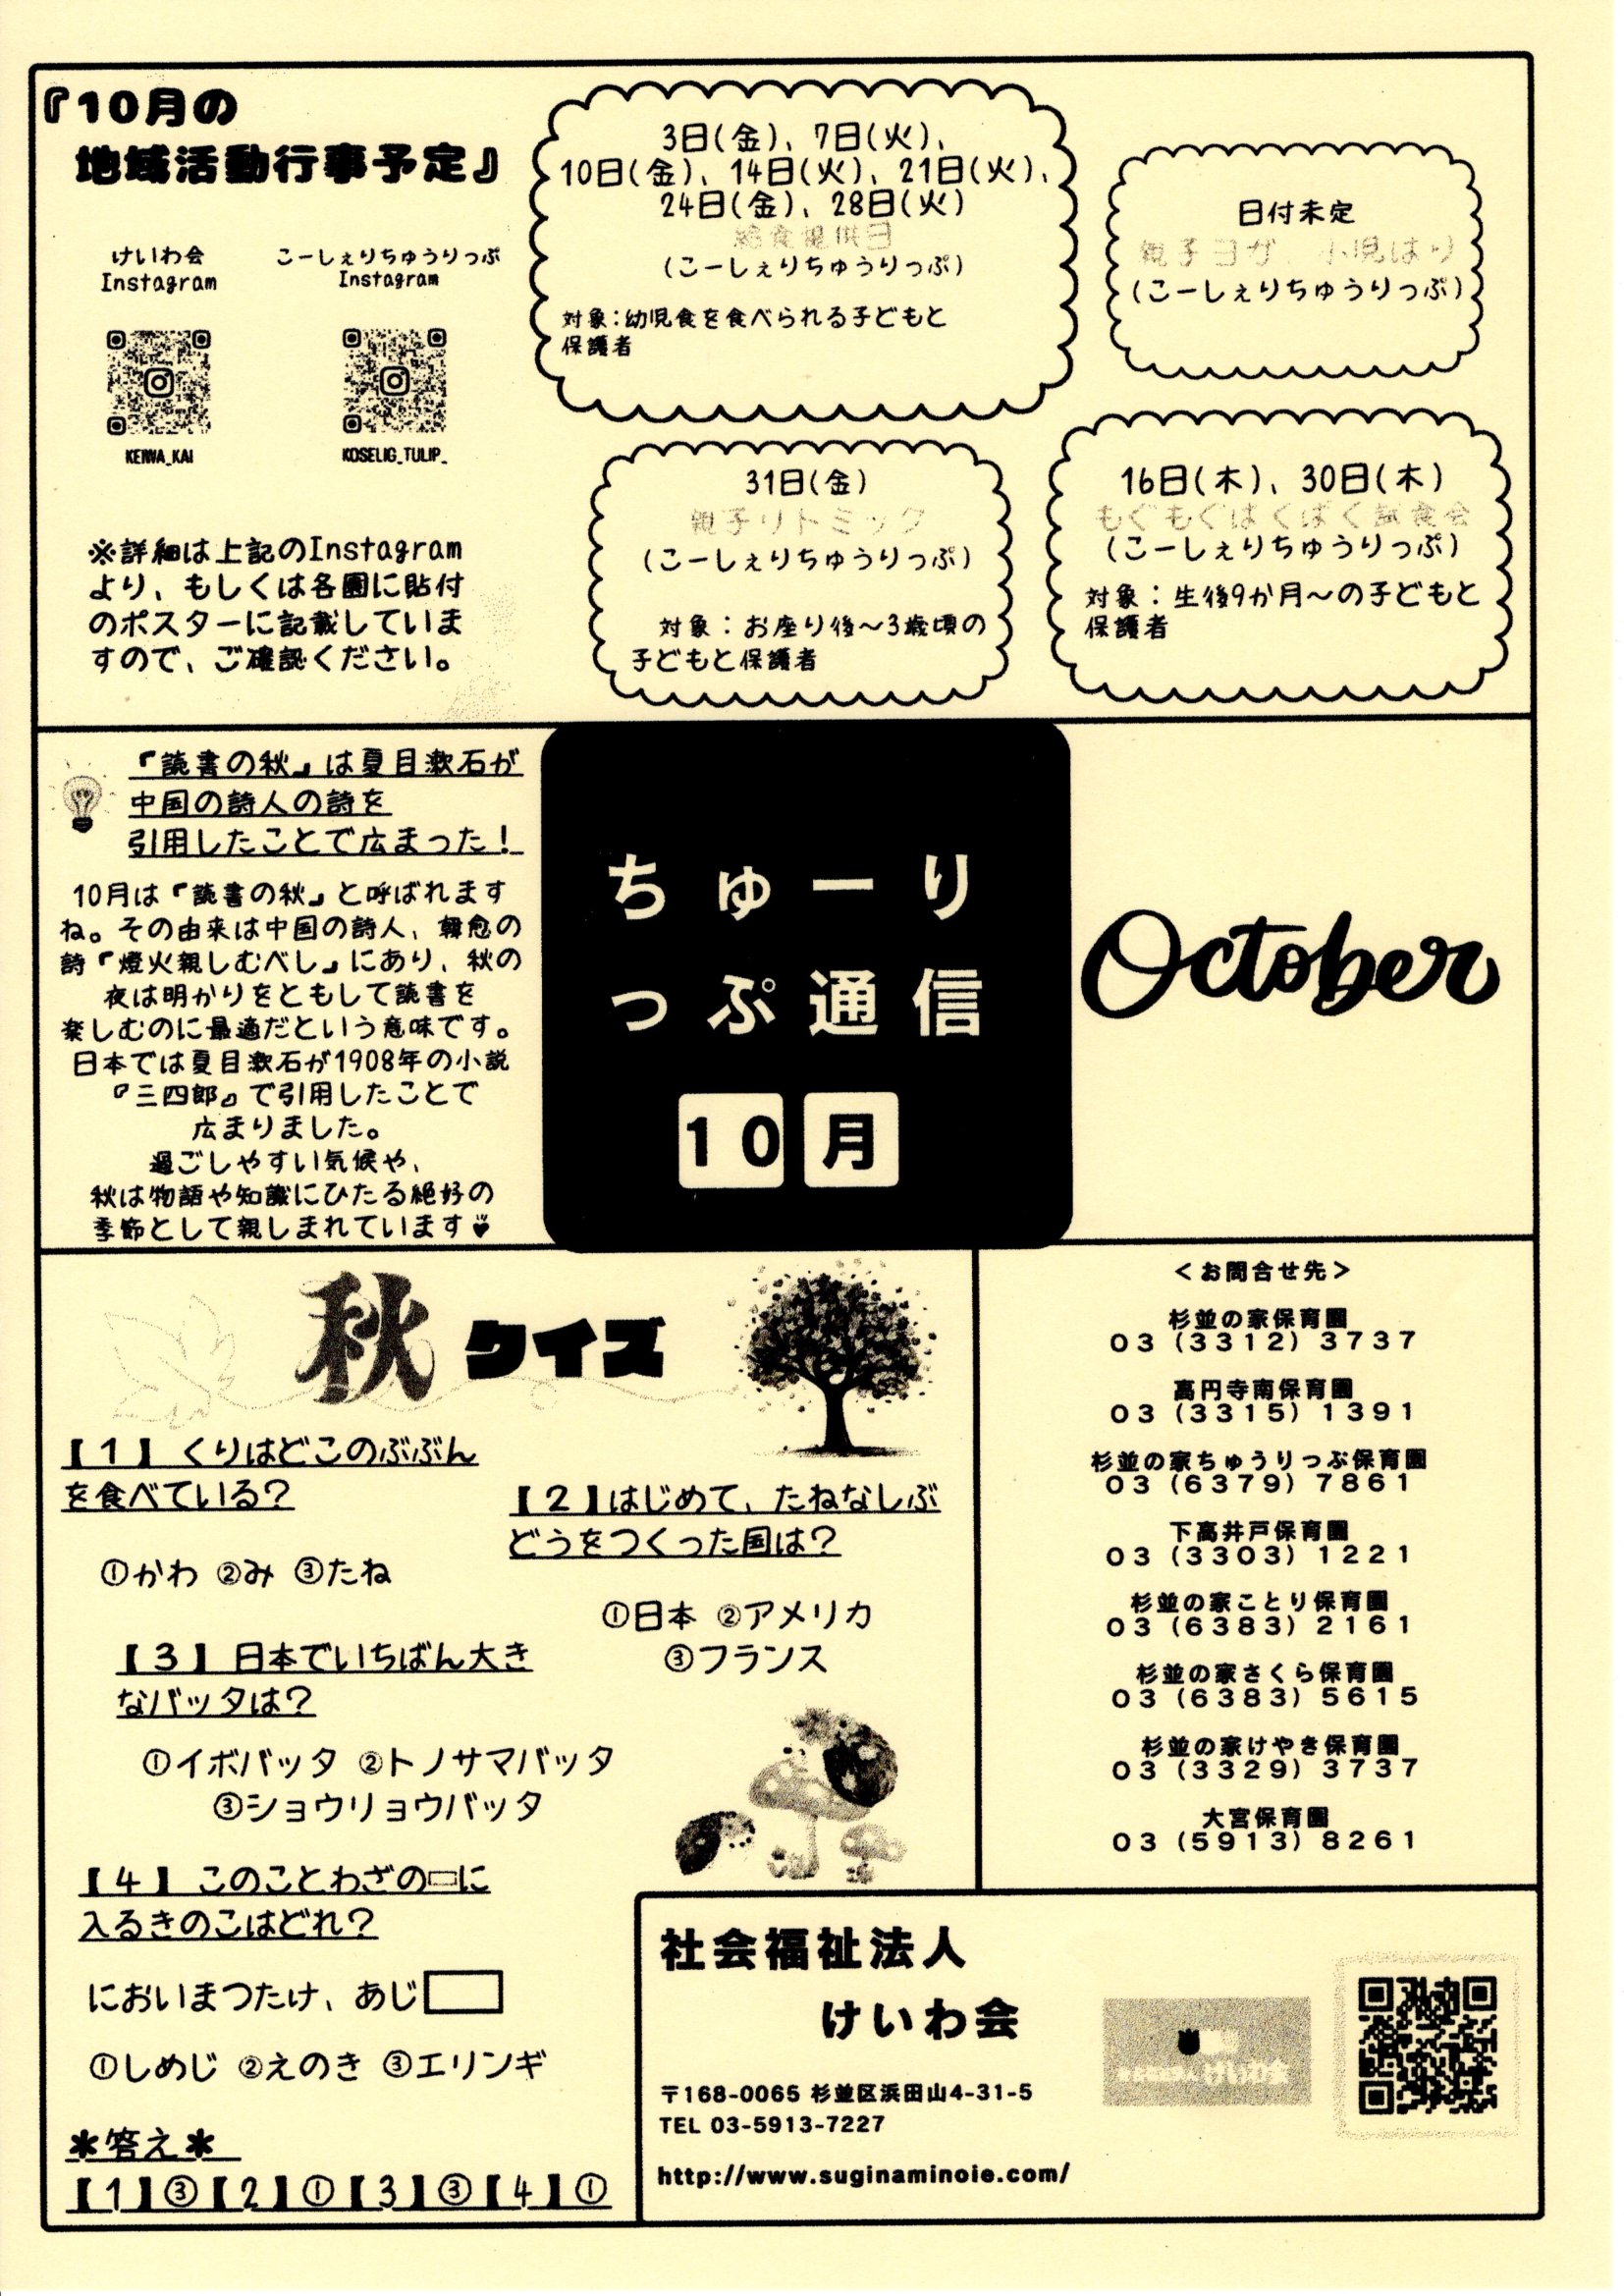 『10月の
地域活動行事予定』
けいわ会
Instagram
KEIWA_KAI
こーしぇりちゅうりっぷ
Instagram
KOSELIG_TULIP_
※詳細は上記のInstagram
より、もしくは各園に貼付
のポスターに記載していま
すので、ご確認ください。
3日(金)、7日(火)、
10日(金)、14日(火)、21日(火)、
24日(金)、28日(火)
給食提供日
(こーしぇりちゅうりっぷ)
対象:幼児食を食べられる子どもと
保護者
日付未定
親子ヨガ、小児はり
(こーしぇりちゅうりっぷ)
31日(金)
親子リトミック
(こーしぇりちゅうりっぷ)
対象:お座り後~3歳頃の
子どもと保護者
16日(木)、30日(木)
もぐもぐぱくぱく試食会
(こーしぇりちゅうりっぷ)
対象:生後9か月~の子どもと
保護者
『読書の秋』は夏目漱石が
中国の詩人の詩を
引用したことで広まった!
10月は『読書の秋』と呼ばれます
ね。その由来は中国の詩人、韓愈の
詩『燈火親しむべし』にあり、秋の
夜は明かりをともして読書を
楽しむのに最適だという意味です。
日本では夏目漱石が1908年の小説
『三四郎』で引用したことで
広まりました。
過ごしやすい気候や、
秋は物語や知識にひたる絶好の
季節として親しまれています♥
ちゅーり
っぷ通信
10月
October
秋クイズ
【1】くりはどこのぶぶん
を食べている?
①かわ ②み ③たね
【2】はじめて、たねなしぶ
どうをつくった国は?
①日本 ②アメリカ
③フランス
【3】日本でいちばん大き
なバッタは?
①イボバッタ ②トノサマバッタ
③ショウリョウバッタ
【4】このことわざの▭に
入るきのこはどれ?
においまつたけ、あじ
①しめじ ②えのき ③エリンギ
＊答え＊
【1】③【2】①【3】③【4】①
＜お問合せ先＞
杉並の家保育園
03（3312）3737
高円寺南保育園
03（3315）1391
杉並の家ちゅうりっぷ保育園
03（6379）7861
下高井戸保育園
03（3303）1221
杉並の家ことり保育園
03（6383）2161
杉並の家さくら保育園
03（6383）5615
杉並の家けやき保育園
03（3329）3737
大宮保育園
03（5913）8261
社会福祉法人
けいわ会
〒168-0065 杉並区浜田山4-31-5
TEL 03-5913-7227
http://www.suginaminoie.com/
けいわ会